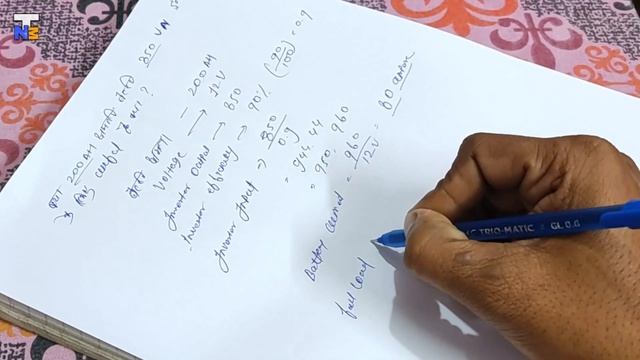 TNM
क्या 200AH बैटरी के लिये 850 VA
के लिए useful है क्या ?
बैटरी क्षमता - 200AH
Voltage → 12V
Inverter Output → 850
Inverter efficiency → 90% (90/100) = 0.9
Inverter Input → 850/0.9
= 944.44
= 950. 960
Battery Current = 960/12V = 80 ampere
full load
TRIO-MATIC GL 0.6